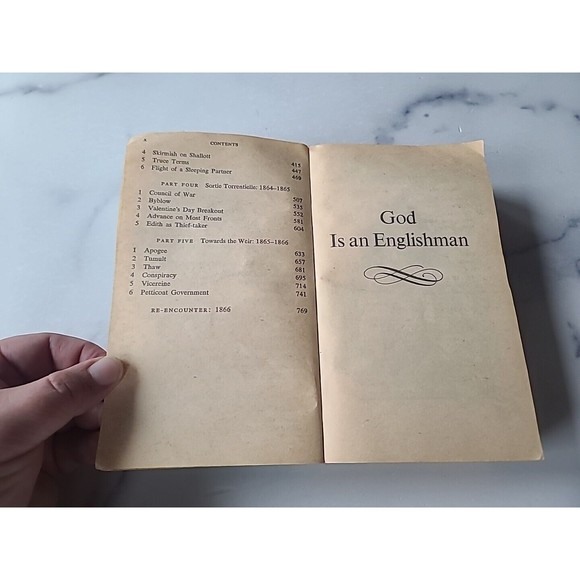 8 CONTENTS
4 Skirmish on Shallott 415
5 Truce Terms 447
6 Flight of a Sleeping Partner 469
PART FOUR Sortie Torrentielle: 1864–1865
1 Council of War 507
2 Byblow 535
3 Valentine's Day Breakout 552
4 Advance on Most Fronts 581
5 Edith as Thief-taker 604
PART FIVE Towards the Weir: 1865–1866
1 Apogee 633
2 Tumult 657
3 Thaw 681
4 Conspiracy 695
5 Vicereine 714
6 Petticoat Government 741
RE-ENCOUNTER: 1866 769
God
Is an Englishman